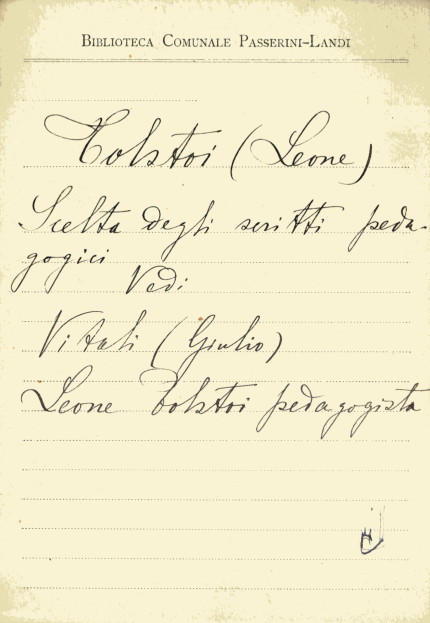 BIBLIOTECA COMUNALE PASSERINI-LANDI
Tolstoi (Leone)
Scelta degli scritti peda-
gogici
Vedi
Vitali (Giulio)
Leone Tolstoi pedagogista